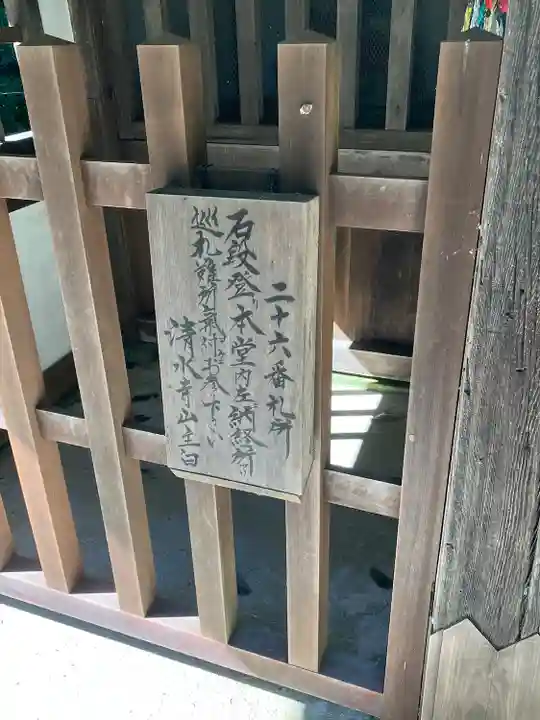 二十六番札所
石段登り本堂内左納経所
巡礼難所気付お参り下さい
清水寺山主白